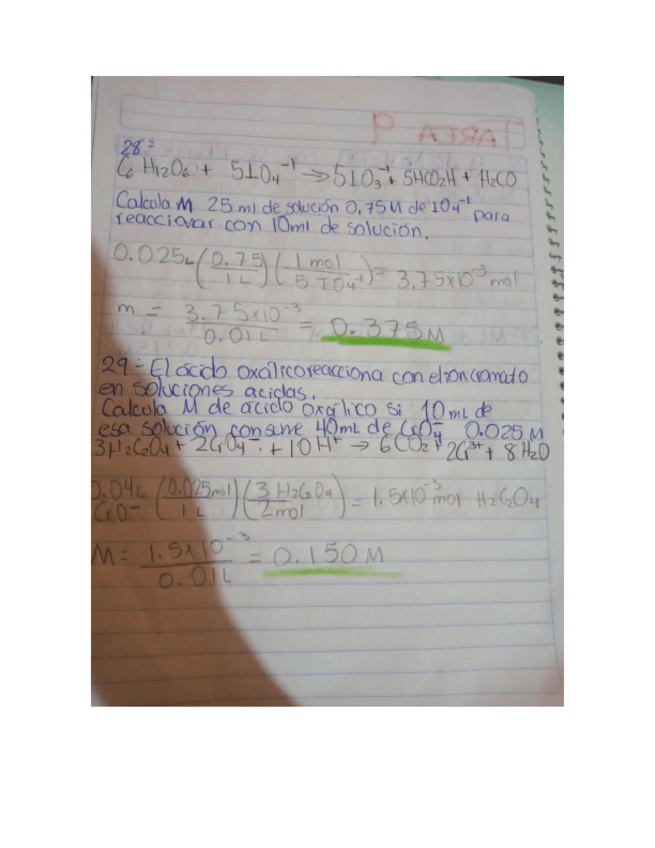 TAREA 9
28=
C6 H12O6 + 5IO4⁻¹ → 5IO3⁻¹ + 5HCO2H + H2CO
Calcula M 25 ml de solución 0,75M de IO4⁻¹ para
reaccionar con 10ml de solución.
0.025L (0.75/1L) (1 mol/5 IO4⁻¹) = 3,75x10⁻³ mol
m = 3.75x10⁻³/0.01L = 0.375M
29= El ácido oxálico reacciona con el ion cromato
en soluciones acidas.
Calcula M de ácido oxálico si 10mL de
esa solución consume 40mL de CrO4⁻ 0.025M
3H2C2O4 + 2CrO4⁻ + 10H⁺ → 6CO2 + 2Cr³⁺ + 8H2O
0.04L CrO⁻ (0.025mol/1L) (3 H2C2O4/2mol) = 1.5x10⁻³ mol H2C2O4
M = 1.5x10⁻³/0.01L = 0.150M